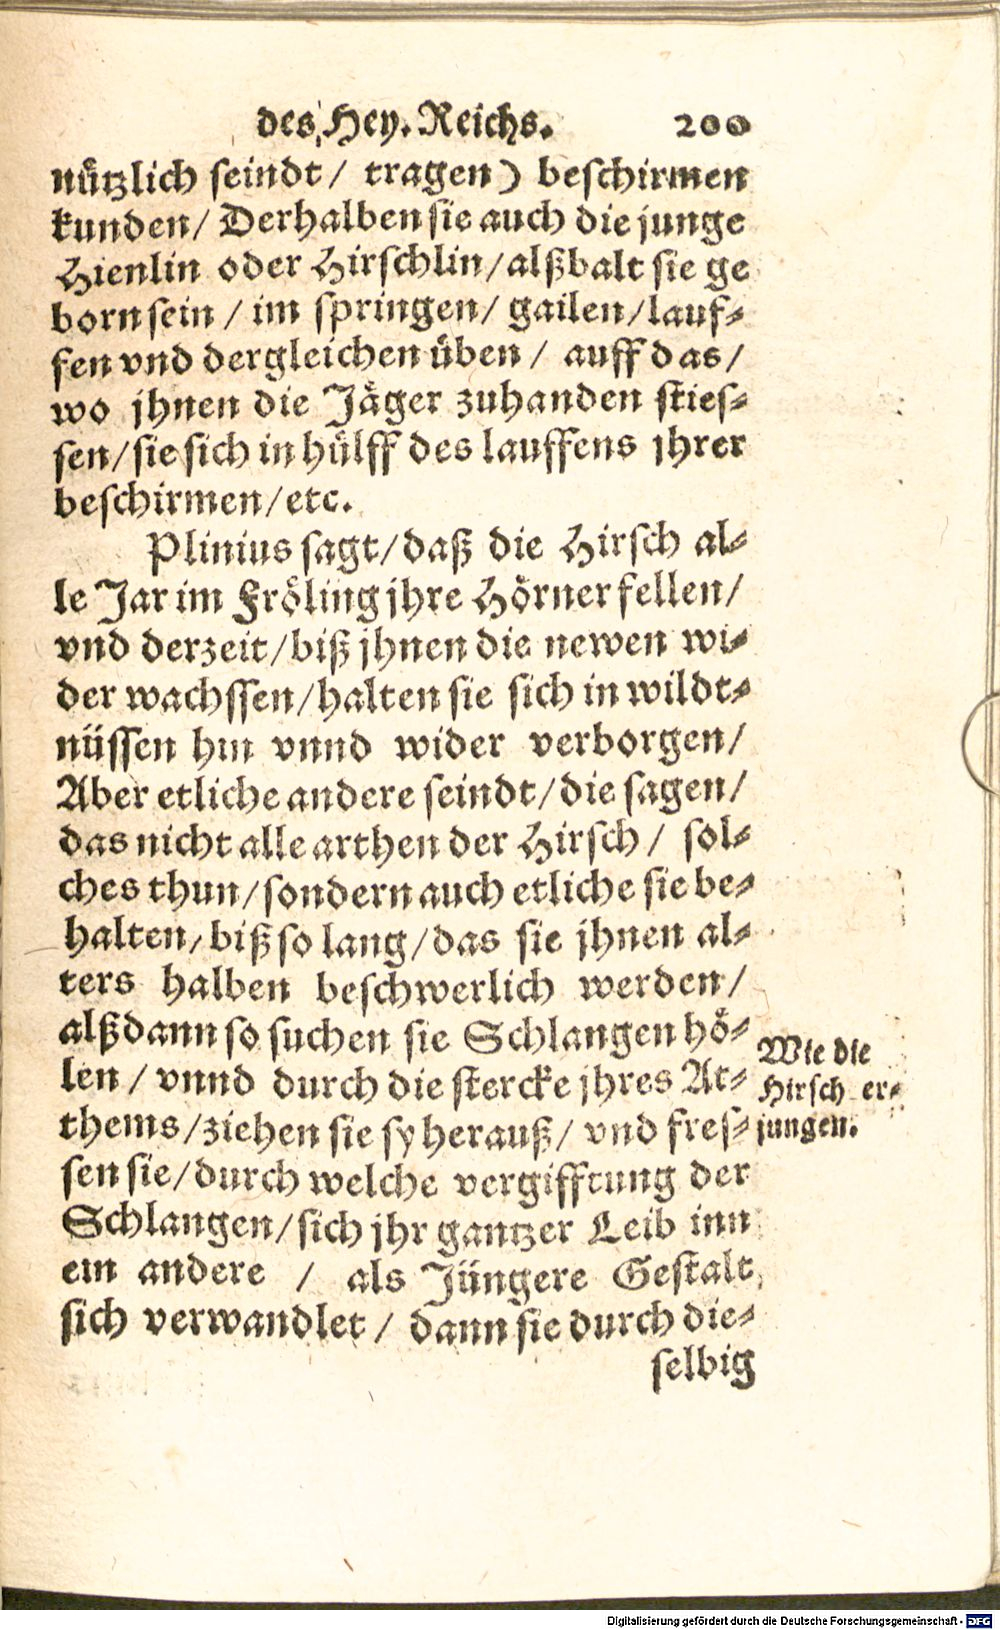 des Hey. Reichs. 200
nützlich seindt/ tragen) beschirmen
kunden/ Derhalben sie auch die junge
Hienlin oder Hirschlin/alßbalt sie ge
born sein / im springen/ gailen/lauf-
fen vnd dergleichen üben / auff das/
wo jhnen die Jäger zuhanden sties-
sen/sie sich in hülff des lauffens jhrer
beschirmen/etc.
Plinius sagt/daß die Hirsch al-
le Jar im Fröling jhre Hörner fellen/
vnd derzeit/biß jhnen die newen wi-
der wachssen/halten sie sich in wildt-
nüssen hin vnnd wider verborgen/
Aber etliche andere seindt/die sagen/
das nicht alle arthen der Hirsch / sol-
ches thun/sondern auch etliche sie be-
halten/biß so lang/das sie jhnen al-
ters halben beschwerlich werden/
alßdann so suchen sie Schlangen hö-
len / vnnd durch die stercke jhres At-
thems/ziehen sie sy herauß/ vnd fres-
sen sie/durch welche vergifftung der
Schlangen/sich jhr gantzer Leib inn
ein andere / als Jüngere Gestalt
sich verwandlet / dann sie durch die-
selbig
Wie die
Hirsch er-
jungen.
Digitalisierung gefördert durch die Deutsche Forschungsgemeinschaft - DFG